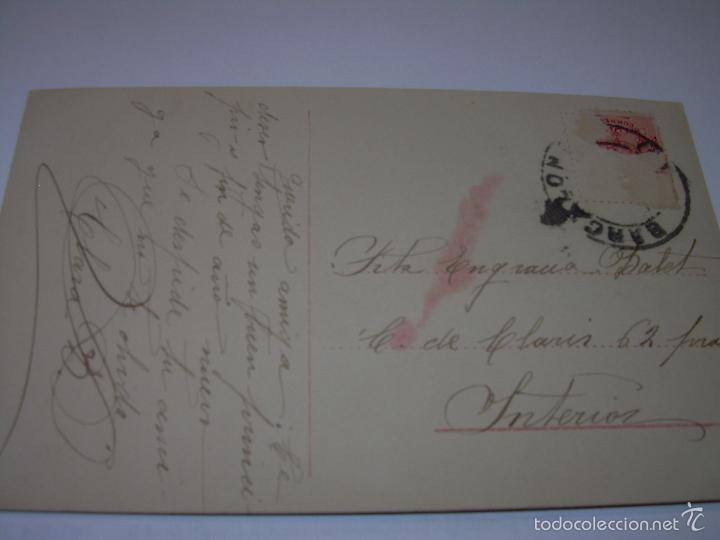 Querida amiga: Te
deseo tengas un buen princi
pio y fin de año nuevo
Se despide tu ami-
ga que no te olvida
Clara
CORRE
BARC
Srta Engracia Dalet
C. de Claris 62 pra
Interior
todocoleccion.net